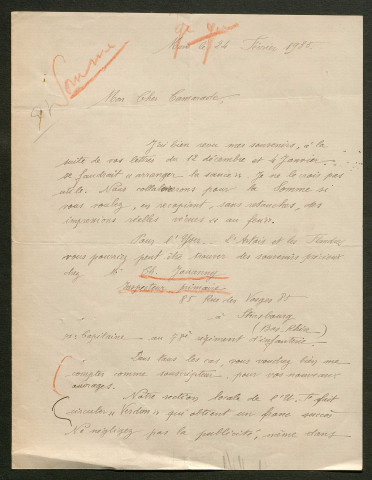 Somme
le 24 Février 1935.
Mon Cher Camarade,
J'ai bien revu mes souvenirs, à la
suite de vos lettres du 12 décembre et 4 Janvier
Faudrait-il "arranger" la sauce ? Je ne le vois pas
utile. Nous collaborerons pour la Somme si
vous voulez, en recopiant, sans retouches, des
impressions réelles vécues au feu.
Pour l'Yser, l'Artois et les
vous pourriez peut être trouver des souvenirs précieux
chez Mr Ch.
Inspecteur primaire
85 Rue des Vosges 85
à Strasbourg
(Bas-Rhin)
ex Capitaine au régiment d'infanterie.
Dans tous les cas, vous voudrez bien me
compter comme souscripteur pour vos nouveaux
ouvrages.
Notre section locale de l'U. fait
circuler "Verdun" qui obtient un franc succès
Ne négligez pas la publicité, même dans